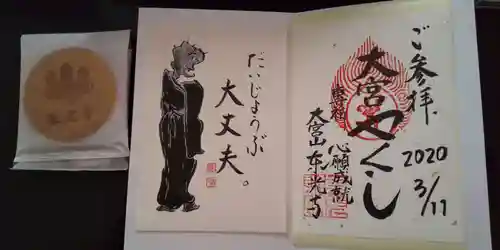 ご参拝
2020
3/11
大宮やくし
心願成就
大宮山东光寺
だいじょうぶ
大丈夫。